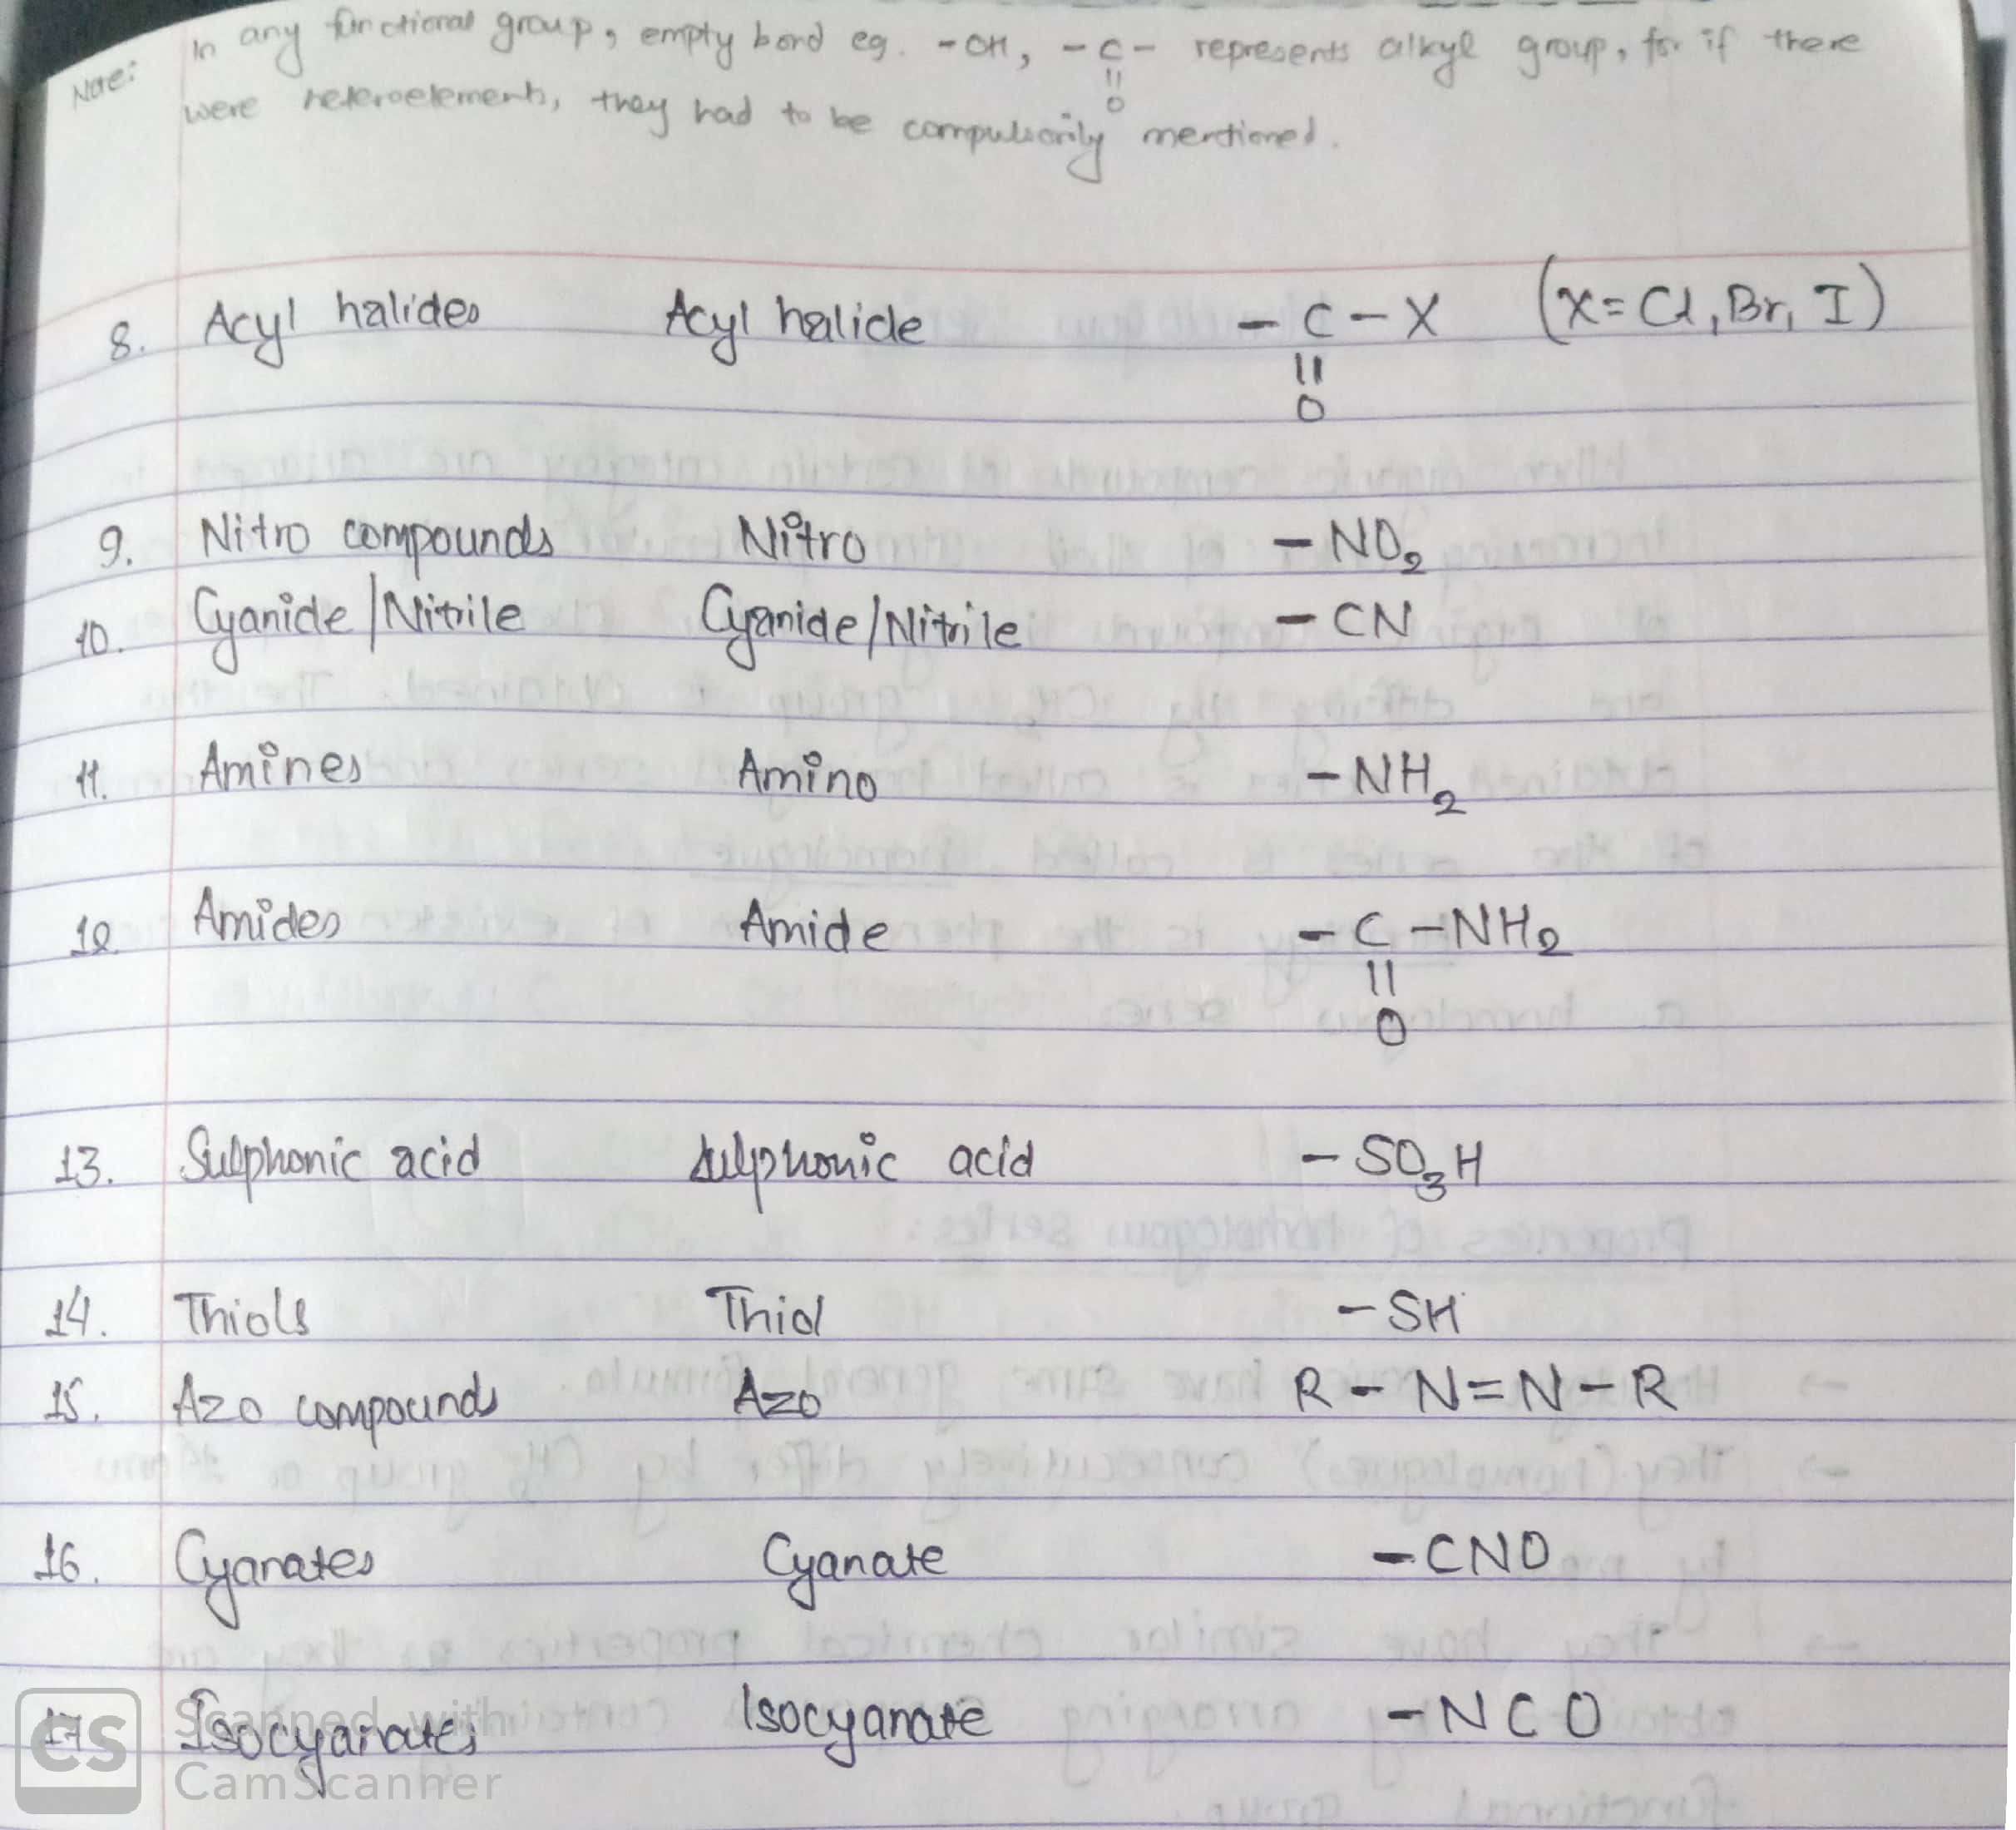 Note: In any functional group, empty bond eg. -OH, -C- represents alkyl group, for if there
||
O
were heteroelements, they had to be compulsorily mentioned.
8. Acyl halides Acyl halide -C-X (X=Cl, Br, I)
||
O
9. Nitro compounds Nitro -NO₂
10. Cyanide/Nitrile Cyanide/Nitrile -CN
11. Amines Amino -NH₂
12 Amides Amide -C-NH₂
||
O
13. Sulphonic acid sulphonic acid -SO₃H
14. Thiols Thiol -SH
15. Azo compounds Azo R-N=N-R
16. Cyanates Cyanate -CNO
17 Isocyanates Isocyanate -NCO
CS Scanned with
CamScanner